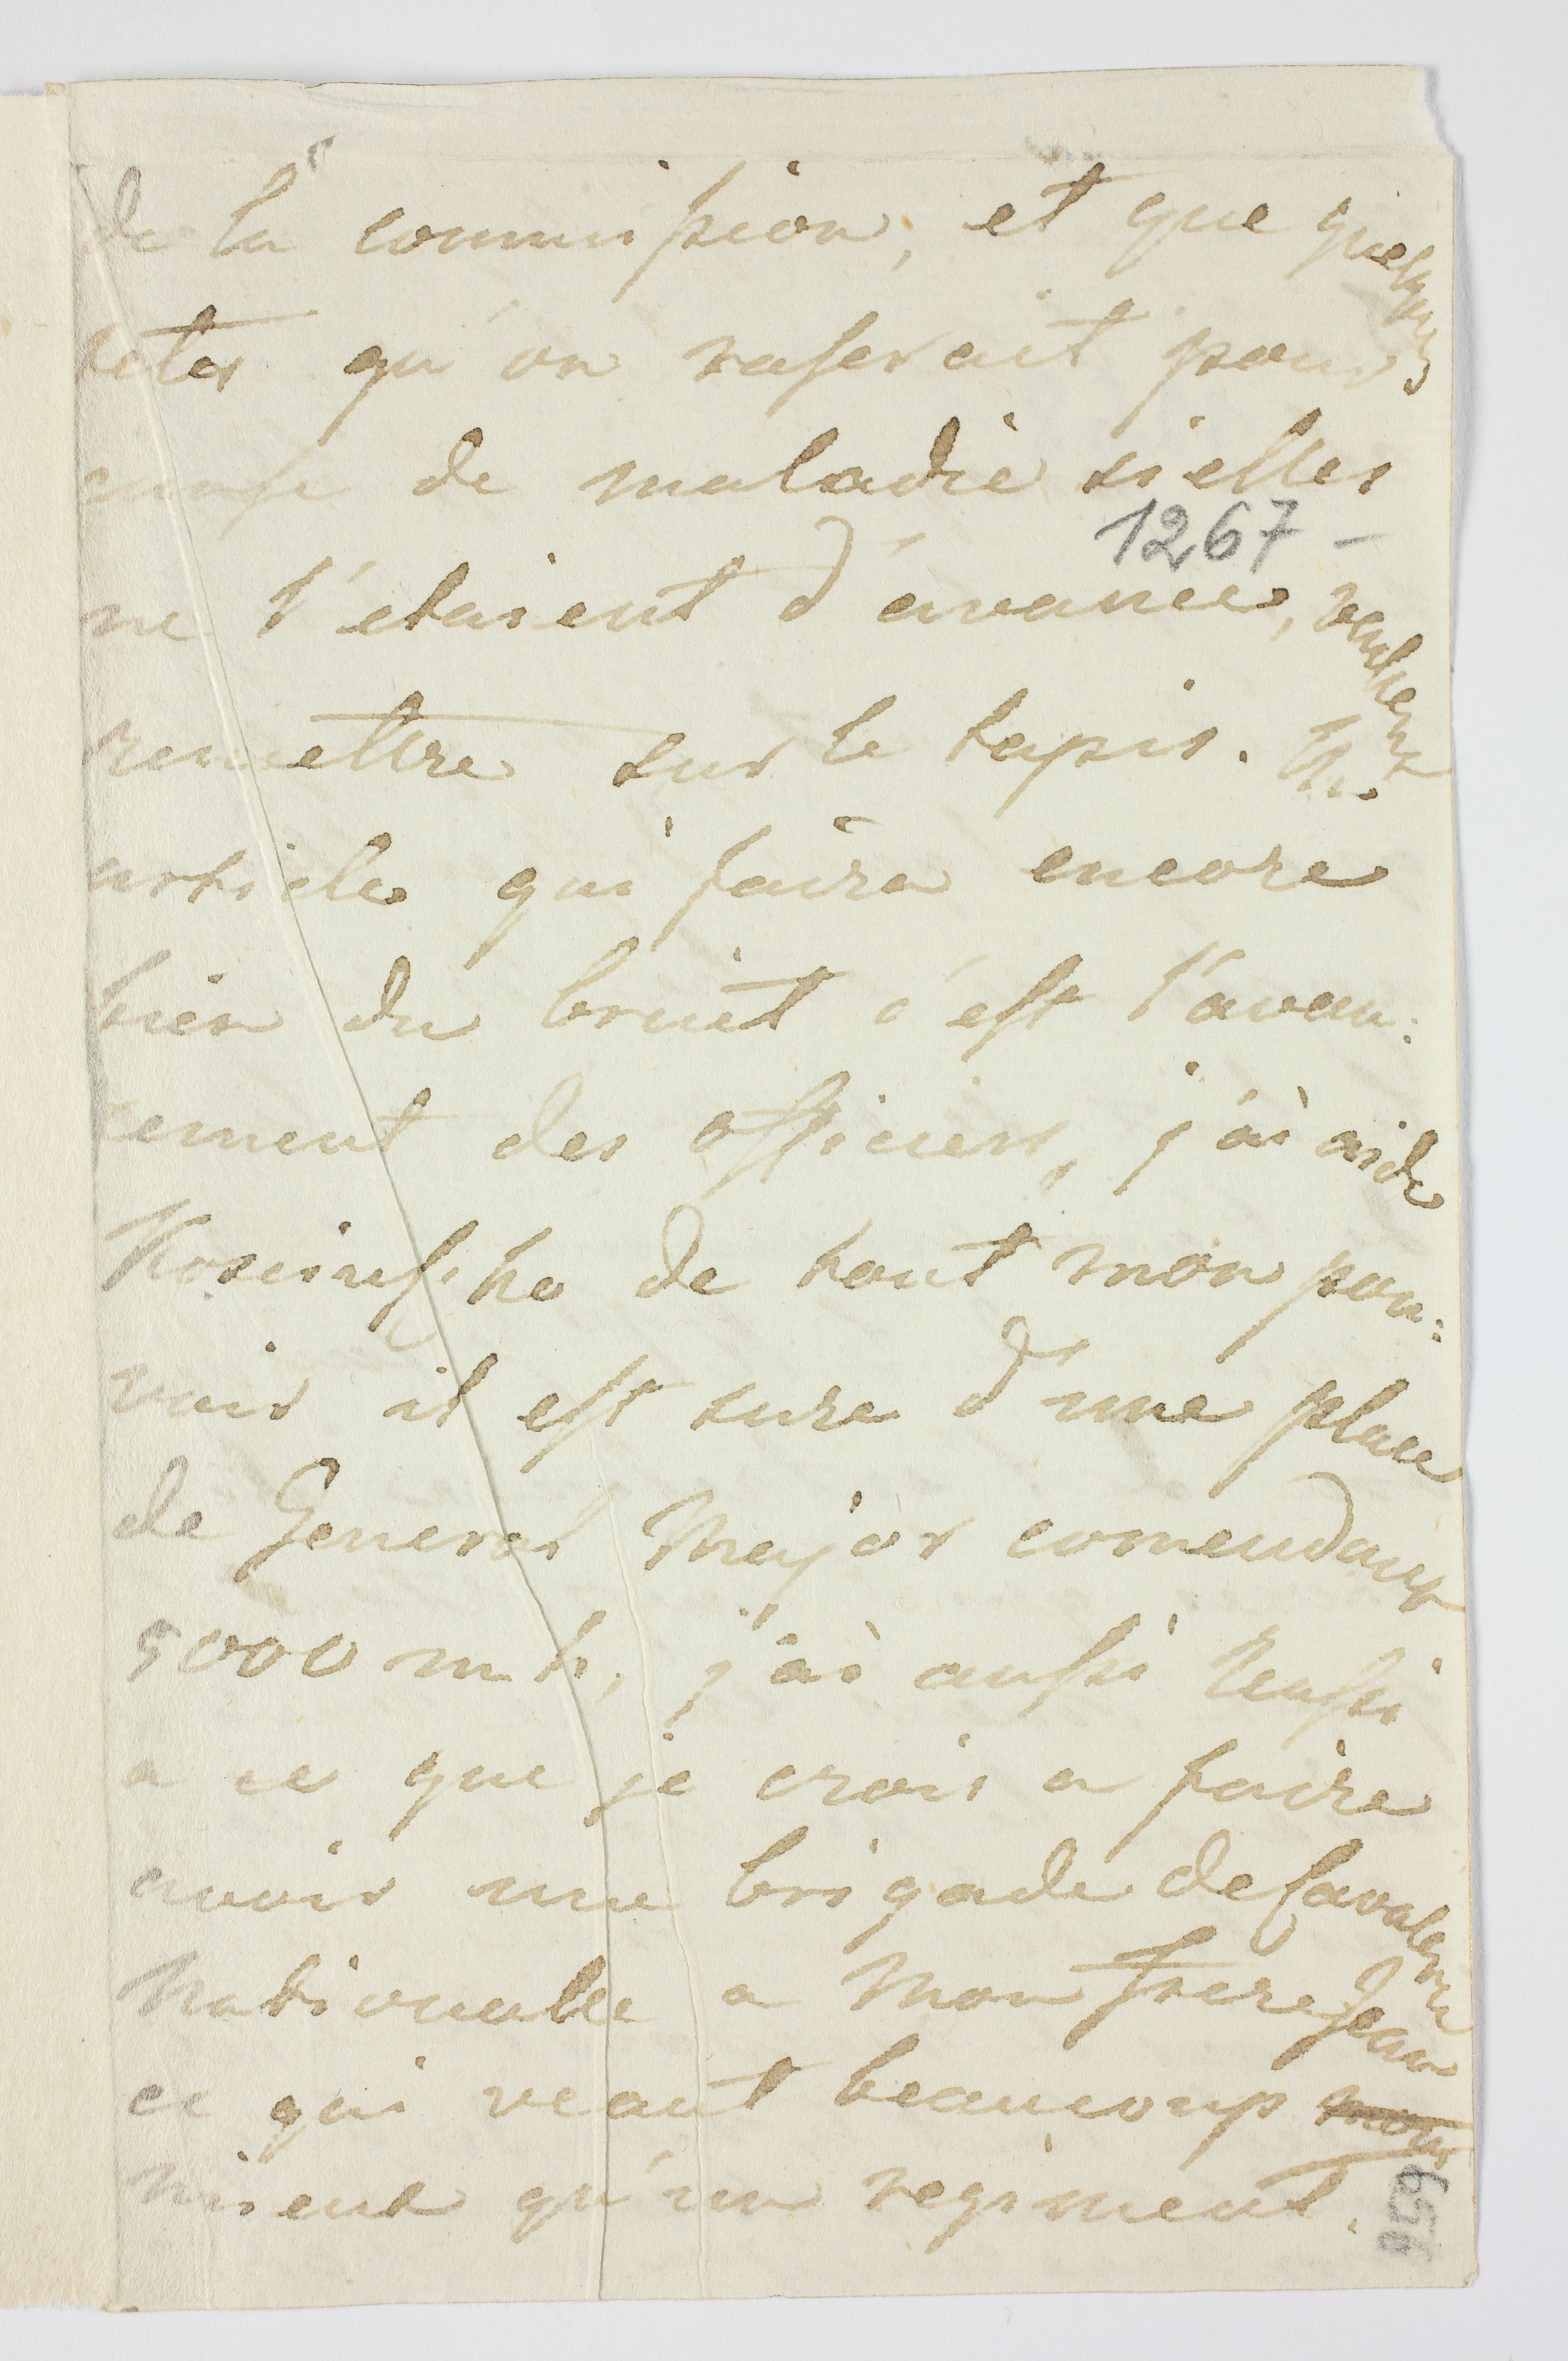 de la commission, et que quelques
tetes qu'on raserait pour
cause de maladie si elles
1267 –
ne l'etaient d'avance, veulent
remettre sur le tapis. Un
article qui faira encore
bien du bruit c'est l'avan:
cement des officiers, j'ai aidé
Kosciuszko de tout mon pou:
voir il est sure d'une place
de General Major comendant
5000 m h, j'ai aussi reussi
a ce que je crois a faire
avoir une brigade de Cavalerie
Nationalle a Mon frere Jean
ce qui veaut beaucoup
mieux qu'un regiment.